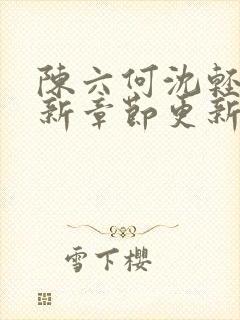 陳六何沈輕
新章節更新
雪下櫻